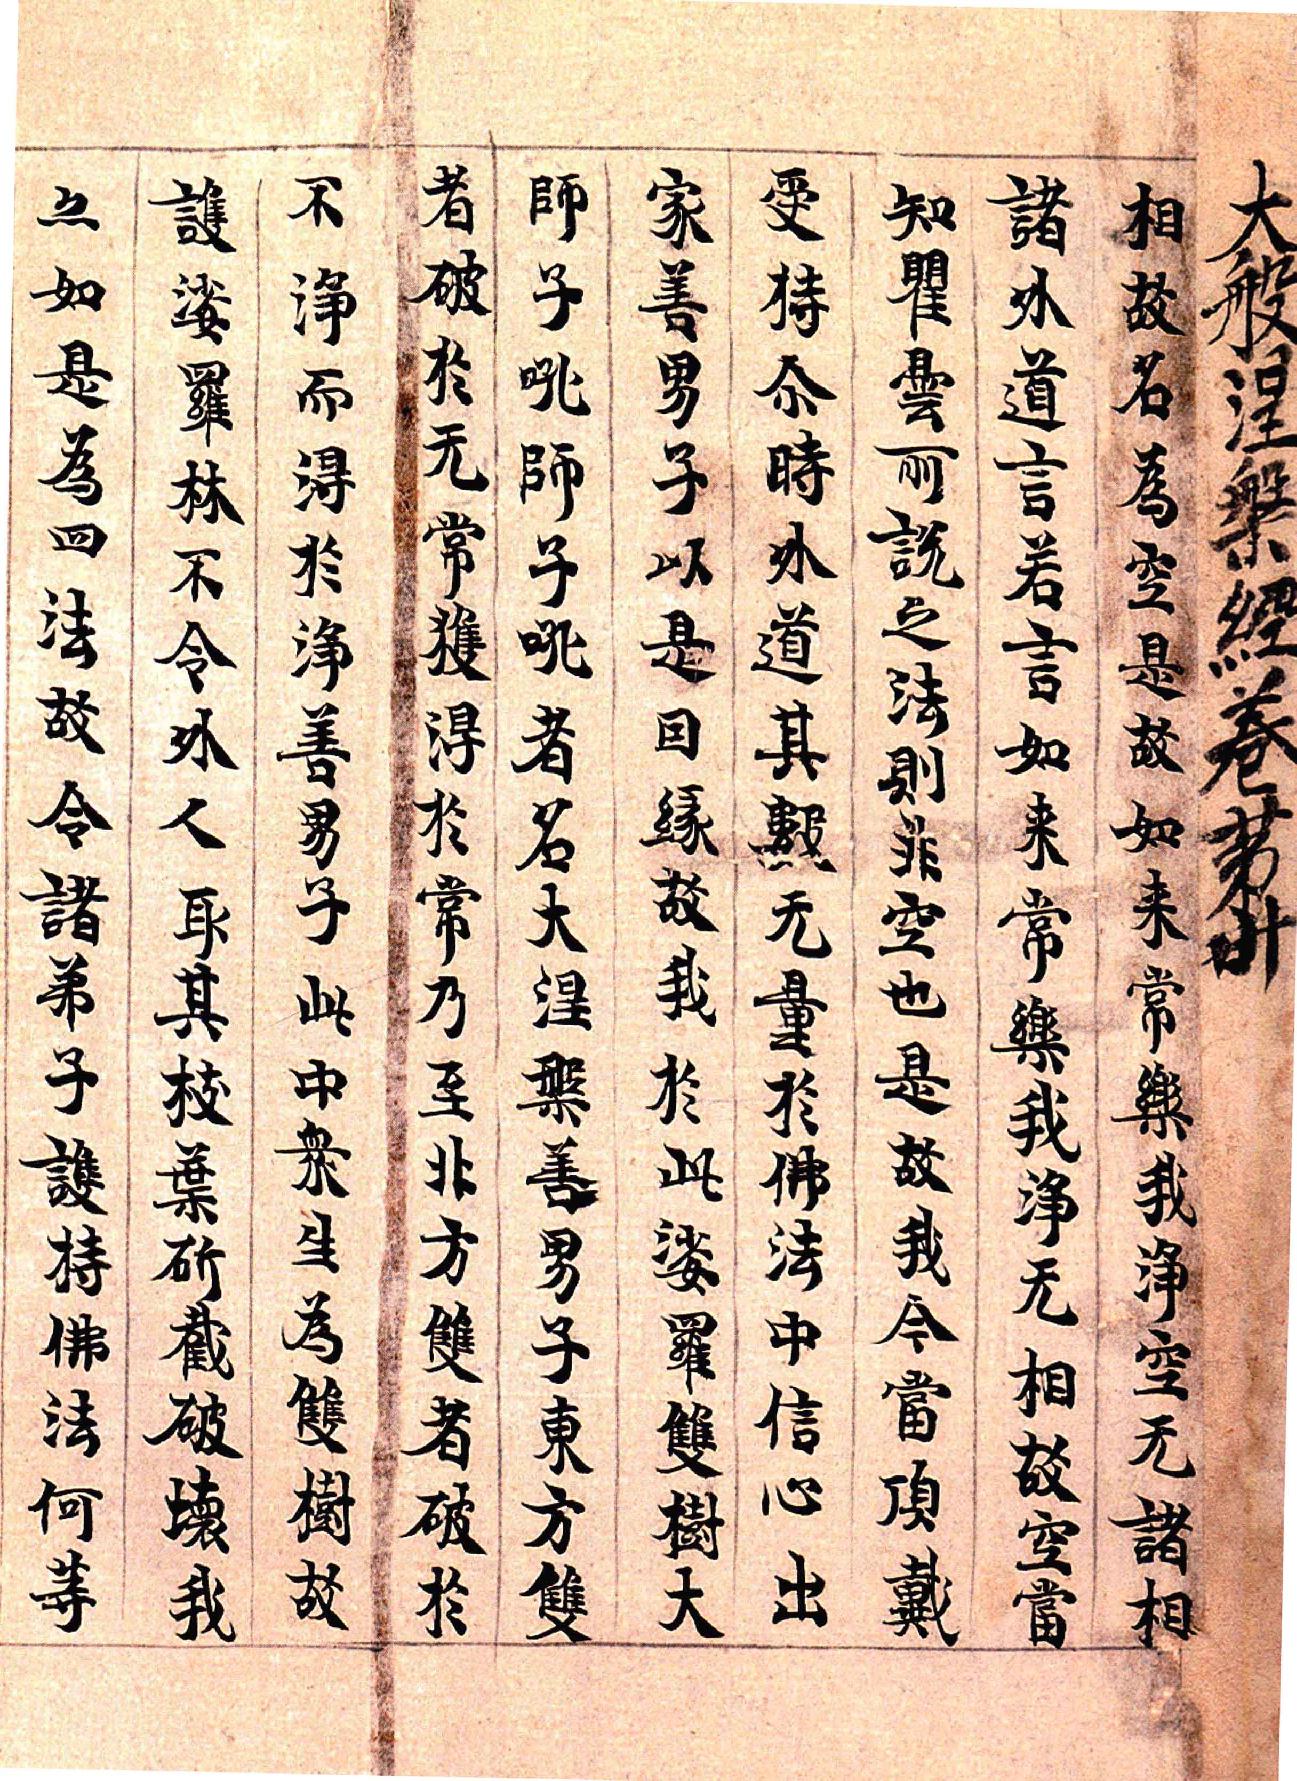 大般涅槃經卷第卌
相故名為空是故如来常樂我淨空无諸相
諸外道言若言如来常樂我淨无相故空當
知瞿曇所說之法則非空也是故我今當頂戴
受持尒時外道其數无量於佛法中信心出
家善男子以是因緣故我於此娑羅雙樹大
師子吼師子吼者名大涅槃善男子東方雙
者破於无常獲得於常乃至北方雙者破於
不淨而得於淨善男子此中衆生為雙樹故
護娑羅林不令外人取其枝葉斫截破壞我
亦如是為四法故令諸弟子護持佛法何等